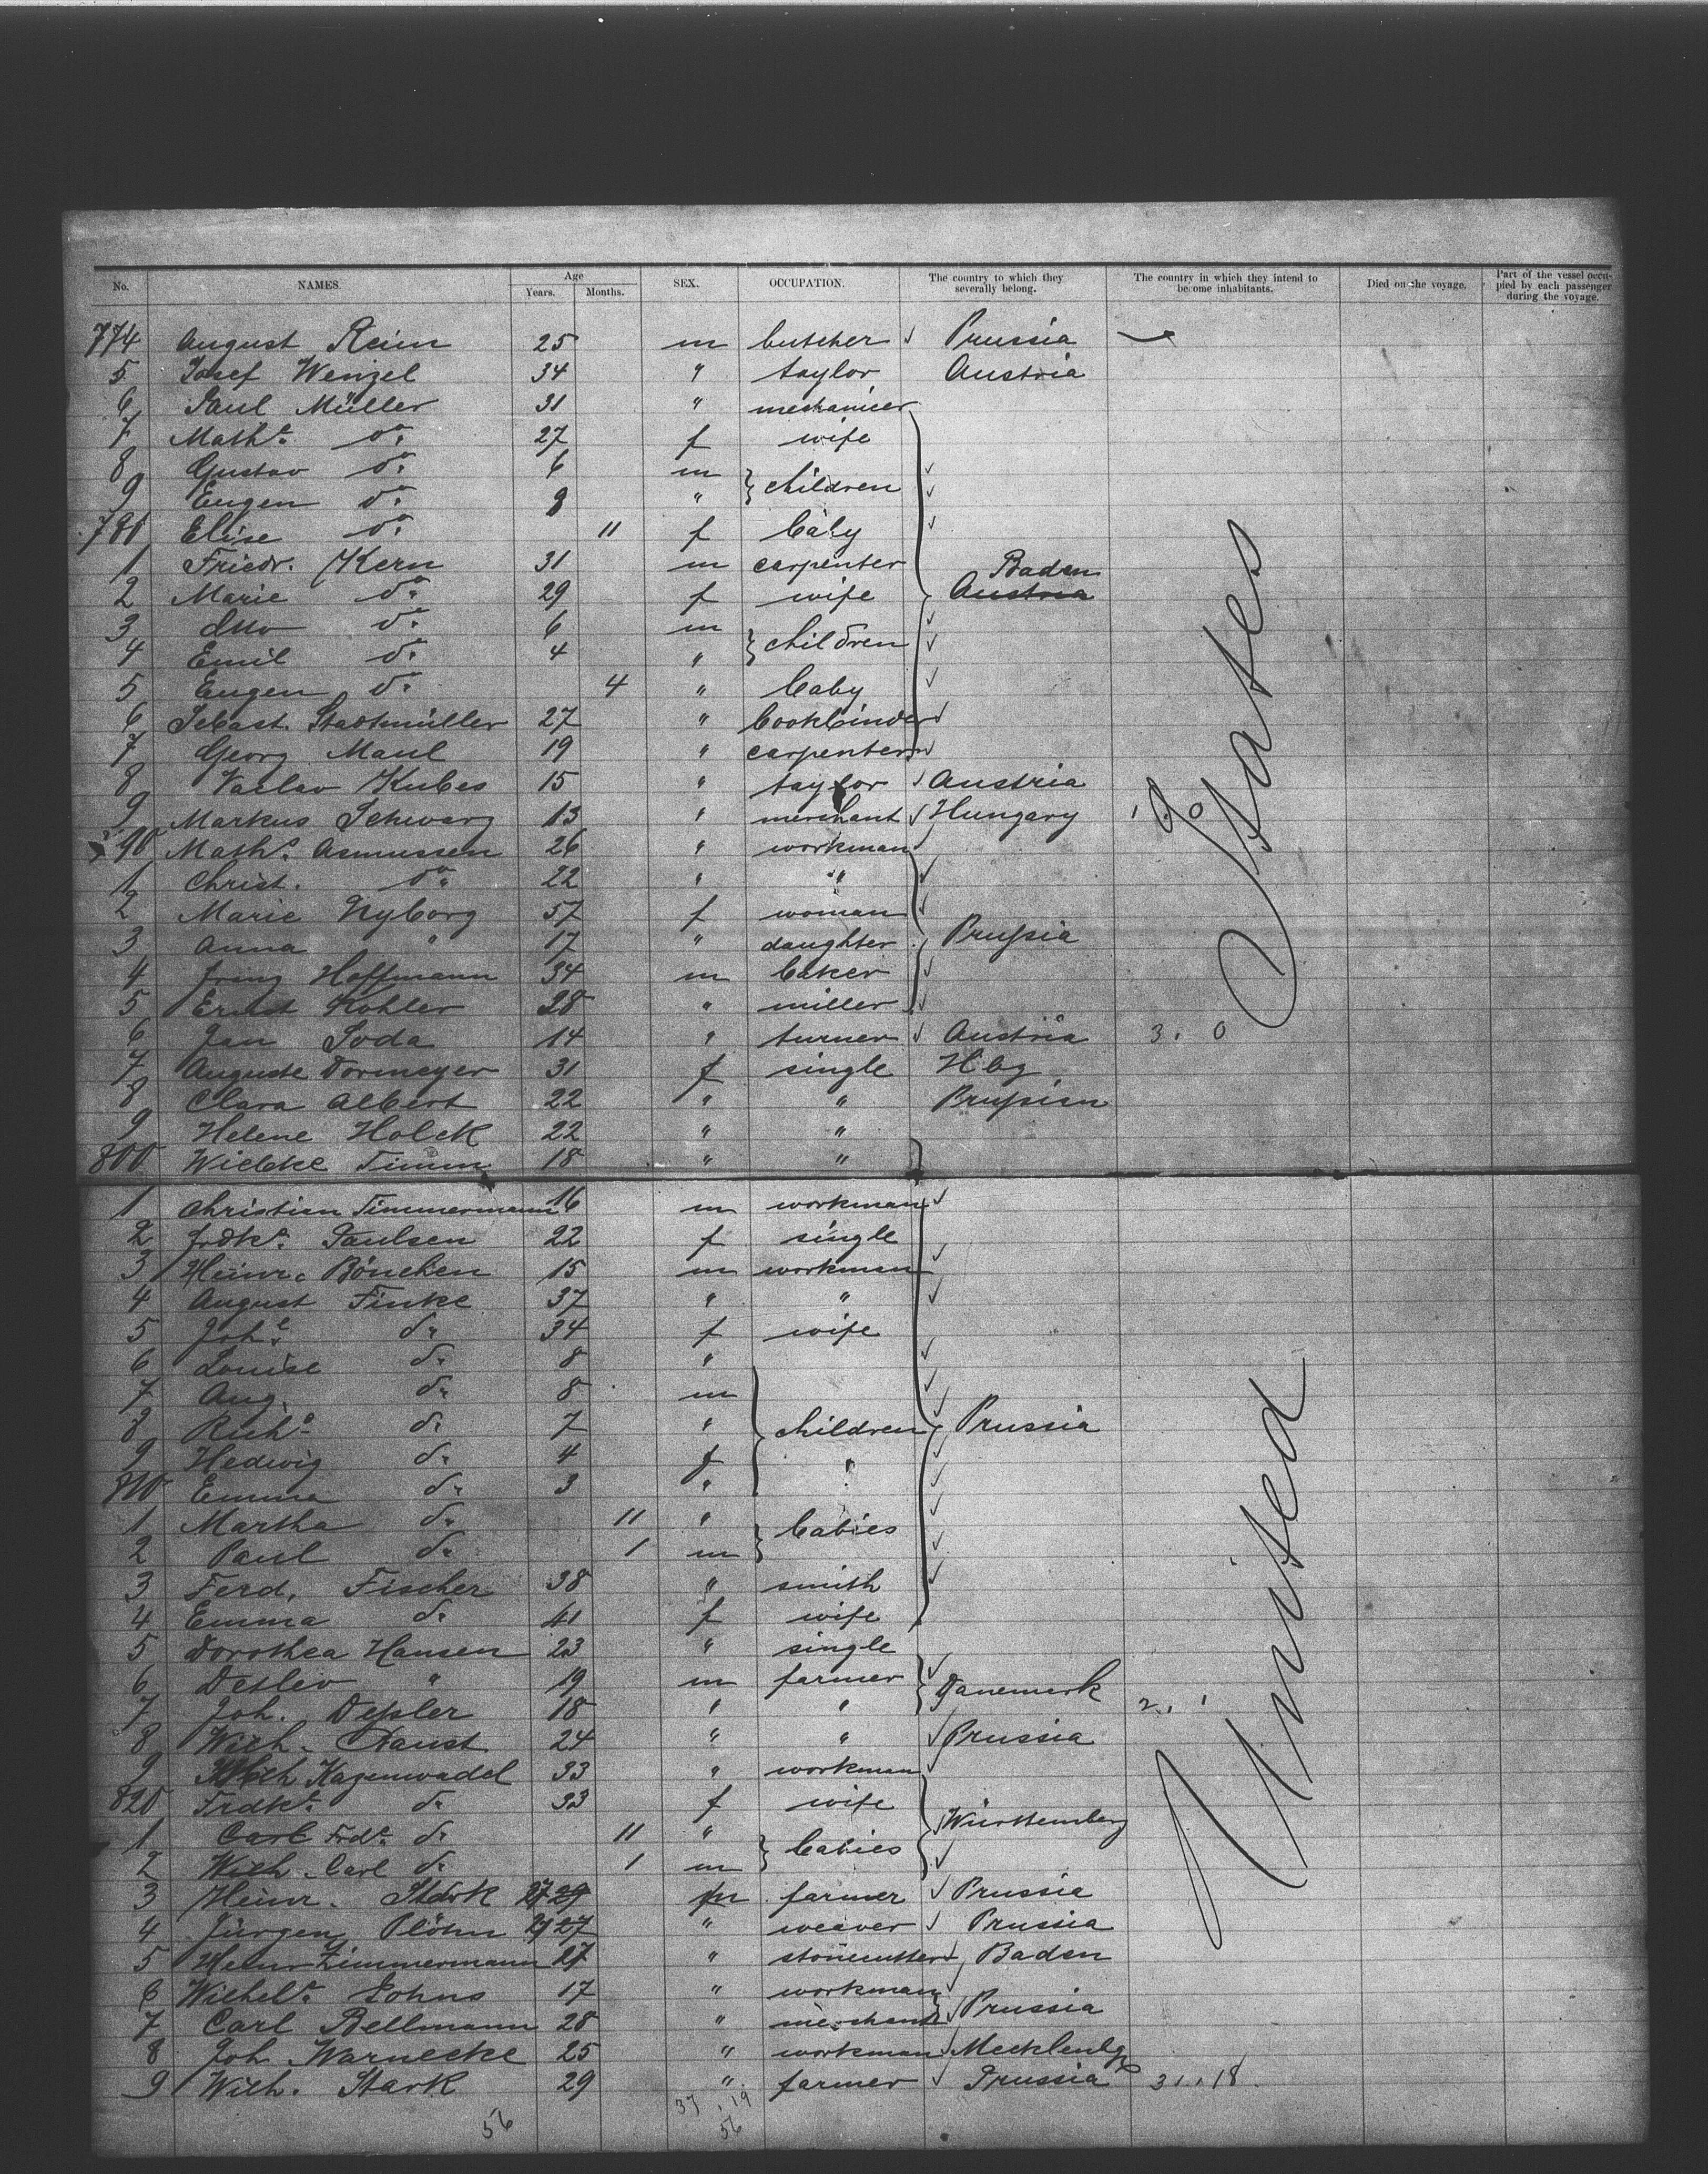 No. NAMES. Age Years. Months. SEX. OCCUPATION. The country to which they severally belong. The country in which they intend to become inhabitants. Died on the voyage. Part of the vessel occupied by each passenger during the voyage.
774 August Reim 25 m butcher Prussia
5 Josef Wenzel 34 " taylor Austria
6 Paul Müller 31 " mechanicer
7 Mathe. do. 27 f wife
8 Gustav do. 6 m children
9 Eugen do. "
780 Elise do. 11 f baby
1 Friedr. Kern 31 m carpenter Baden
2 Marie do. 29 f wife Austria
3 Otto do. 6 m children
4 Emil do. 4 "
5 Eugen do. 4 " baby
6 Sebast. Stadtmüller 27 " bookbinder
7 Georg Maul 19 " carpenter
8 Vaclav Kubes 15 " taylor Austria
9 Markus Schwarz 13 " merchant Hungary
790 Maths. Asmussen 26 " workman
1 Christ. do. 22 " "
2 Marie Nyborg 57 f woman
3 Anna " 17 " daughter Prussia
4 Hoffmann 34 m baker
5 Ernst Kohler 28 " miller
6 Jan Soda 14 " turner Austria 3. 0
7 Auguste Dormeyer 31 f single Hbg
8 Clara Albert 22 " " Prussian
9 Helene Holck 22 " "
800 Wiebke Timm 18 " "
1 Christian Timmermann 16 m workman
2 Frdke. Paulsen 22 f single
3 Heinr. Bönchen 15 m workman
4 August Finke 37 " "
5 Johe. do. 34 f wife
6 Louise do. 8 "
7 Aug. do. 8 m
8 Richd. do. 7 " children Prussia
9 Hedwig do. 4 f "
810 Emma do. 3 "
1 Martha do. 11 " babies
2 Paul do. 1 m
3 Ferd. Fischer 38 " smith
4 Emma do. 41 f wife
5 Dorothea Hansen 23 " single
6 Detlev " 19 m farmer Danemark
7 Joh. Dessler 18 " " 2. 1
8 Wilh. Faust 24 " " Prussia
9 Wilh Hagenwadel 33 " workman
820 Frdke. do. 33 f wife Württemberg
1 Carl Frdr. do. 11 " babies
2 Wilh. Carl do. 1 m
3 Heinr. Stark 27 29 m farmer Prussia
4 Jürgen Plöhn 27 " weaver Prussia
5 Heinr Zimmermann 27 " stonecutter Baden
6 Wilhelm. Lohns 17 " workman Prussia
7 Carl Bellmann 28 " merchant
8 Joh Warnecke 25 " workman Mecklenbg
9 Wilh. Stark 29 " farmer Prussia 31. 18
United States
56
37. 19
56